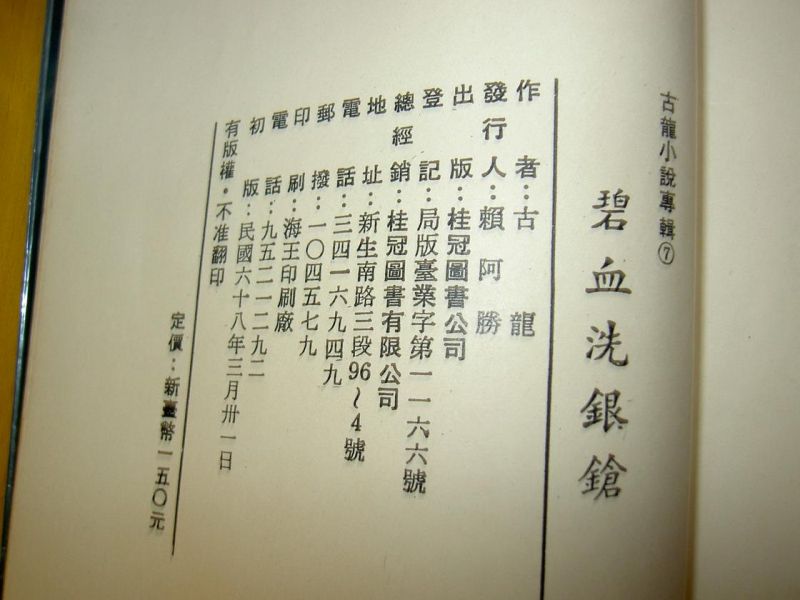 古龍小說專輯⑦
碧血洗銀鎗
作者：古龍
發行人：賴阿勝
出版：桂冠圖書公司
登記：局版臺業字第一一六六號
總經銷：桂冠圖書有限公司
地址：新生南路三段96～4號
電話：三四一六九四九
郵撥：一〇四五七九
印刷：海王印刷廠
電話：九五二一二九二
初版：民國六十八年三月卅一日
有版權·不准翻印
定價：新臺幣一五〇元